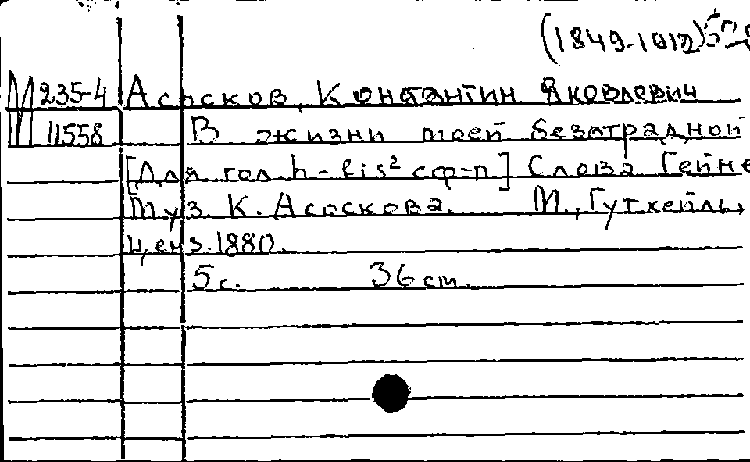 (1849-1912)
М 235-4 Асосков, Константин Яковлевич
11558 В жизни моей безотрадной
[Для гол. h-eis² с ф-п] Слова Гейне
Муз К. Асоскова. М., Гутхейль,
ценз. 1880.
5 с. 36 см.